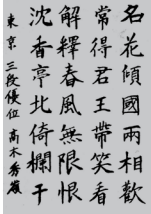 名花傾國兩相歡
常得君王帶笑看
解釋春風無限恨
沈香亭北倚欄干
東京 三段優位 高木秀嶺